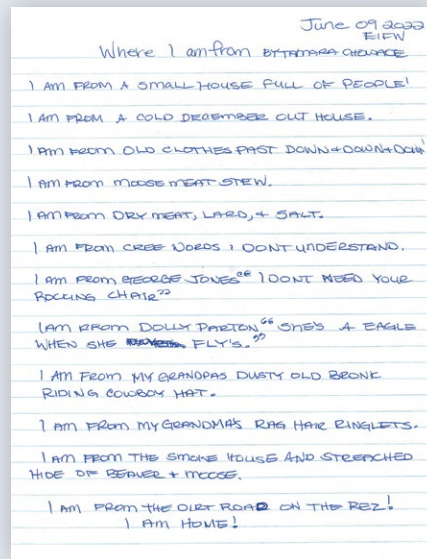 June 09 2022
EIFW
Where I am from BY TAMARA
I AM FROM A SMALL HOUSE FULL OF PEOPLE!
I AM FROM A COLD DECEMBER OUT HOUSE.
I AM FROM OLD CLOTHES PAST DOWN + DOWN + DOWN
I AM FROM MOOSE MEAT STEW.
I AM FROM DRY MEAT, LARD, + SALT.
I AM FROM CREE WORDS I DONT UNDERSTAND.
I AM FROM GEORGE JONES "I DONT NEED YOUR
ROCKING CHAIR"
I AM FROM DOLLY PARTON "SHE'S A EAGLE
WHEN SHE FLY'S."
I AM FROM MY GRANDPAS DUSTY OLD BRONK
RIDING COWBOY HAT.
I AM FROM MY GRANDMA'S RAG HAIR RINGLETS.
I AM FROM THE SMOKE HOUSE AND STREACHED
HIDE OF BEAVER + MOOSE.
I AM FROM THE DIRT ROAD ON THE REZ!
I AM HOME!